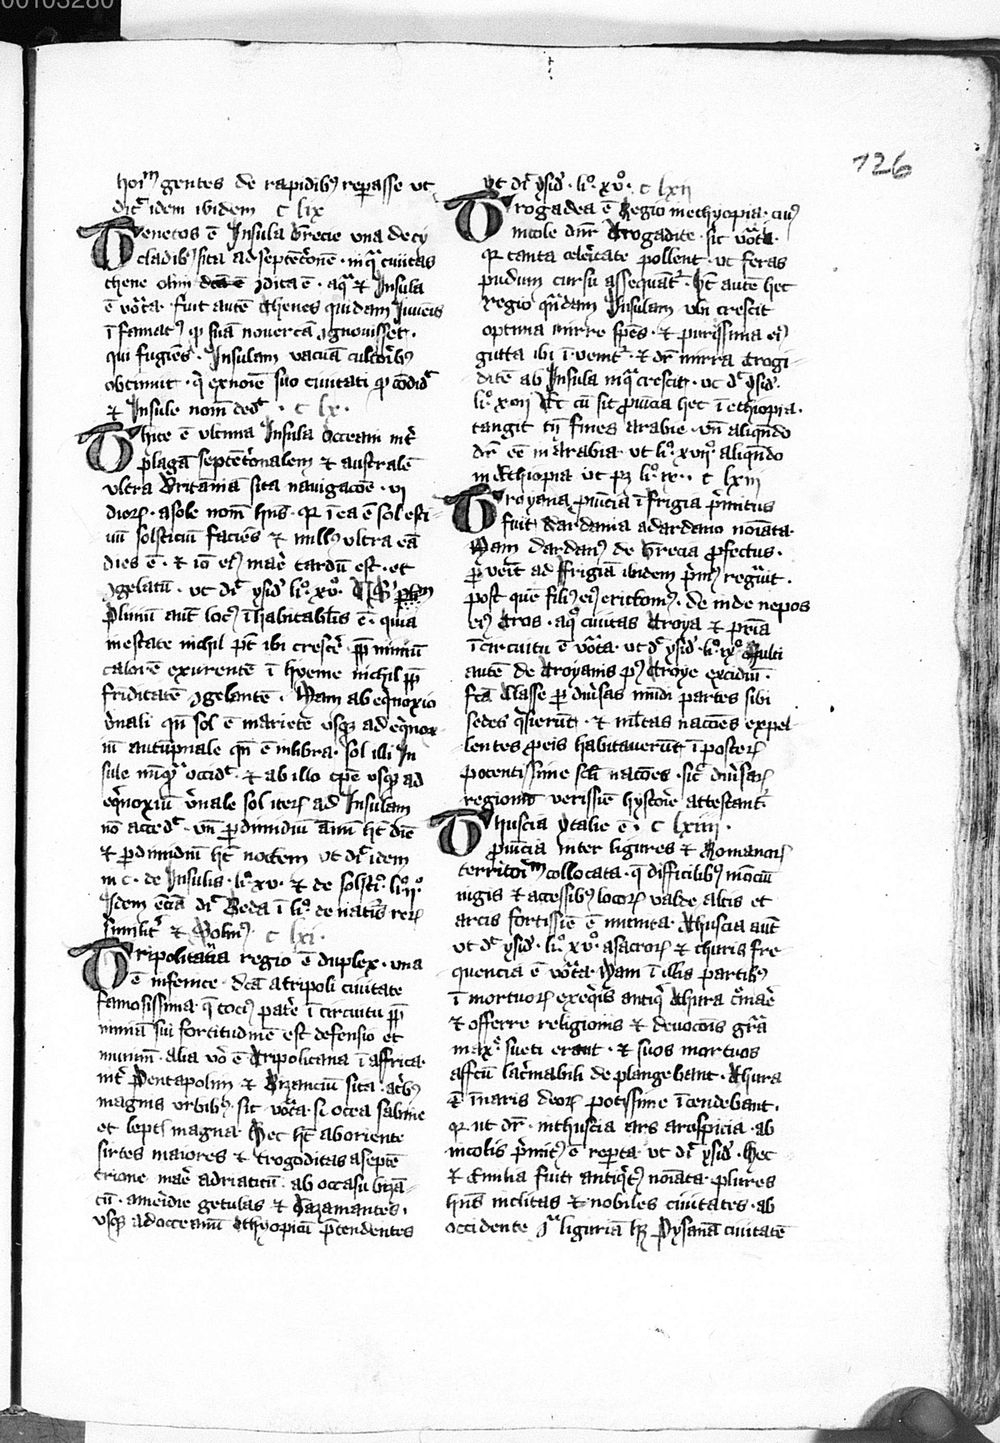 00103280
126
hoīm gentes de rapidibꝰ repasse ut
dicͭ idem ibidem c lix
Tenetos ē Insula Grecie una de cy
cladibꝰ sita ad septētͥonē · in q̄ ciuitas
thene olim dc̄a ē ꝯdita ē · a qͣ ⁊ Insula
ē uōta · fuit autē thenes quidam Iuuēis
īfamatꝰ ꝙ suā nouercā ꝯgnouisset ·
qui fugiēs · Insulam vacuā cultoribꝰ
obtinuit · q̄ ex noīe suo ciuitati ꝙ cōdidͭ
⁊ Insule nom̄ dedͭ · c lx ·
Thile ē ultima Insula occeani int̄
plagā septētͥonalem ⁊ australē
ultra Britāniā sita nauigacōe · vi
dieꝝ · a sole nom̄ hn̄s · ꝙ ī ea ē sol esti
uū solsticiū faciēs ⁊ nullꝰ ultra eā
dies ē · ⁊ iō eiꝰ mare tardū est · et
ꝯgelatū · ut dicͭ ysidͥ liͦ · xvͦ ·
Pliniū aut̄ locꝰ īhabitabilis ē · quia
in estate nichil pt̄ ibi crescē ꝓp̄ nimiū
calorē exurentē ī hyeme nichil ꝓp̄
friditatē ꝯgelantē · Nam ab eqͥnoxio
v̄nali qn̄ sol ē in ariete usqꝫ ad eqͥnox
iū autūpnale qn̄ ē in libra · sol illi In
sule nūqͣ occidͭ · ⁊ ab illo tp̄e usqꝫ ad
eqͥnoxiū v̄nale sol iterꝫ ad Insulam
nō accedͭ · vn̄ ꝑ dimidiū annū hꝫ diē
⁊ ꝑ dimidiū hꝫ noctem ut dicͭ idem
in c · de Insulis · liͦ · xv · ⁊ de solstiͦ · liͦ · iiͦ ·
Idem eciā dicͭ Beda ī liͦ de naturis reꝝ
similitͥ ⁊ Solinꝰ · c lxi ·
Tripolitana regio ē duplex · una
ē in fenice · dc̄a a tripoli ciuitate
famosissima · q̄ tociꝰ patͥe ī circuitu ꝓp̄
nimiā sui fortitudinē est defensio et
munimͭ · alia vͦ ē Tripolitana ī affrica ·
int̄ Pentapolim ⁊ Bizanciū sita · a tͥbꝰ
magnis urbibꝰ · sic vocata · s · ocea sabine
et leptꝭ magna · Hec hꝫ ab oriente
sirtes maiores ⁊ trogoditas a septē
trione mare adriaticū · ab occasu bizā
tiū · a meridie getulas ⁊ Gazamantes ·
usqꝫ ad occeanū ethyopicū p̄tendentes
Vt dicͭ ysidͥ · liͦ · xvͦ · c lxii
Trogadea ē Regio in ethyopia · cuiꝰ
incole dnr̄ Trogadite · sic vōta ·
ꝙ tanta celeritate pollent · ut feras
pedum cursu assequant̄ · Hꝫ autē hec
regio qͣndam Insulam ubi crescit
optima mirre spēs · ⁊ purissima eiꝰ
gutta ibi īuenitͥ · ⁊ dr̄ mirra trogi
ditē ab Insula in qͣ crescit · ut dicͭ ysidͥ ·
liͦ · xvii Et cū sit ꝓuīcia hec ī ethiopia ·
tangit tn̄ fines arabie · vn̄ aliqn̄do
dr̄ eē in Arabia ut liͦ · xviiͦ aliqn̄do
in Ethiopia ut pꝫ liͦ · ix · c lxiii
Troyana ꝓuīcia ī frigia p̄mitus
fuit dardania a dardano noīata ·
Nam dardanꝰ de Grecia ꝓfectus ·
ꝑueīt ad ffrigiā ibidem p̄mꝰ regnauit ·
post quē filiꝰ eiꝰ erictonꝰ · deinde nepos
eiꝰ Tros · a qͦ ciuitas Troya ⁊ pͣia
ī circuitu ē vōta · ut dͭ ysidͥ · liͦ · ixͦ Multi
autē de Troyanis pꝰ Troye excidiū ·
fc̄a classe ꝑ diu̅sas mūdi partes sibi
sedes qͥsierūt · ⁊ mltas nacōes expel
lentes ꝓ eis habitauerūt ī posteꝝ
potentissime fc̄i nacōes · sicͭ diu̅saꝝ
regionū verissīe hystorie attestant̄ ·
Thuscia ytalie ē · c lxiiii ·
ꝓuīcia Inter ligures ⁊ Romanoꝝ
territoriū collocata · q̄ difficilibꝰ mōciū
iugis ⁊ accessibꝰ locoꝝ valde altis et
arcis fortissīe ē munita · Thuscia aut̄
ut dͭ ysidͥ · liͦ · xvͦ · a sacroꝝ ⁊ thuris fre
quencia ē vōta · Nam ī illis partibꝰ
ī mortuoꝝ exeqͥis antiqͥ thura cremare
⁊ offerre religionis ⁊ deuocōis grͣa
maxͦ · sueti erant · ⁊ suos mortuos
affectu lacrimabili deplangebant · Thura
ī naris deoꝝ potissime īcendebant ·
ꝙ ut dr̄ · in thuscia ars arospicia · ab
incolis p̄mitꝰ ē reperta ut dicͭ ysidͥ · Hec
⁊ Emilia fuit antiqͥtꝰ noīata · plures
hn̄s inclitas ⁊ nobiles ciuitates · ab
occidente ꝯͣ liguriā hꝫ Pysanā ciuitatē